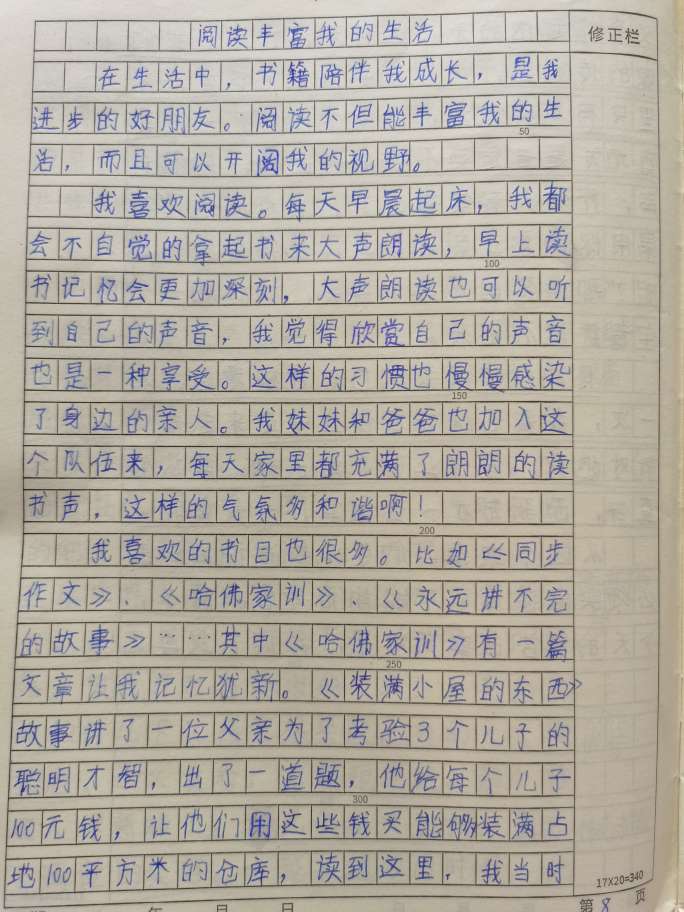 阅读丰富我的生活
修正栏
在生活中，书籍陪伴我成长，是我
进步的好朋友。阅读不但能丰富我的生
50
活，而且可以开阔我的视野。
我喜欢阅读。每天早晨起床，我都
会不自觉的拿起书来大声朗读，早上读
100
书记忆会更加深刻，大声朗读也可以听
到自己的声音，我觉得欣赏自己的声音
也是一种享受。这样的习惯也慢慢感染
150
了身边的亲人。我妹妹和爸爸也加入这
个队伍来，每天家里都充满了朗朗的读
书声，这样的气氛多和谐啊！
200
我喜欢的书目也很多。比如《同步
作文》、《哈佛家训》、《永远讲不完
的故事》……其中《哈佛家训》有一篇
250
文章让我记忆犹新。《装满小屋的东西》
故事讲了一位父亲为了考验3个儿子的
聪明才智，出了一道题，他给每个儿子
300
100元钱，让他们用这些钱买能够装满占
地100平方米的仓库，读到这里，我当时
17X20=340
年 月 日
第8页